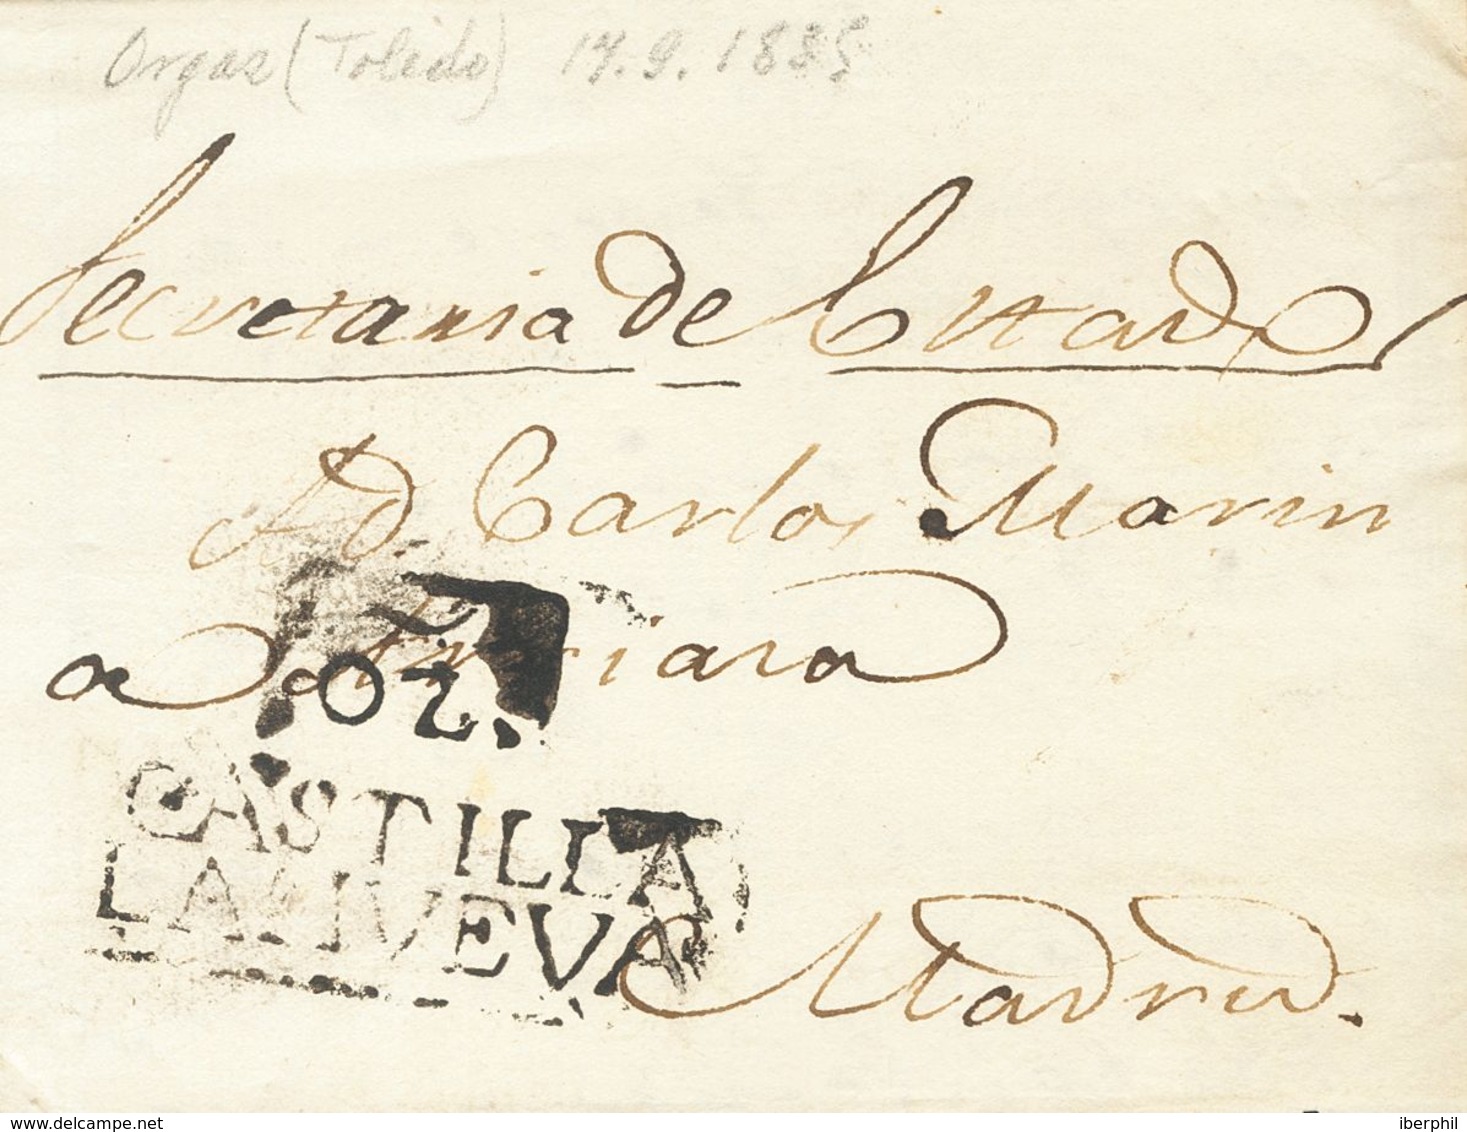 Orgaz (Toledo) 17.9.1835
Secretaria de Estado
A D. Carlos Marin
OZ.
CASTILLA
LA NUEVA
Madrid.
www.delcampe.net
iberphil